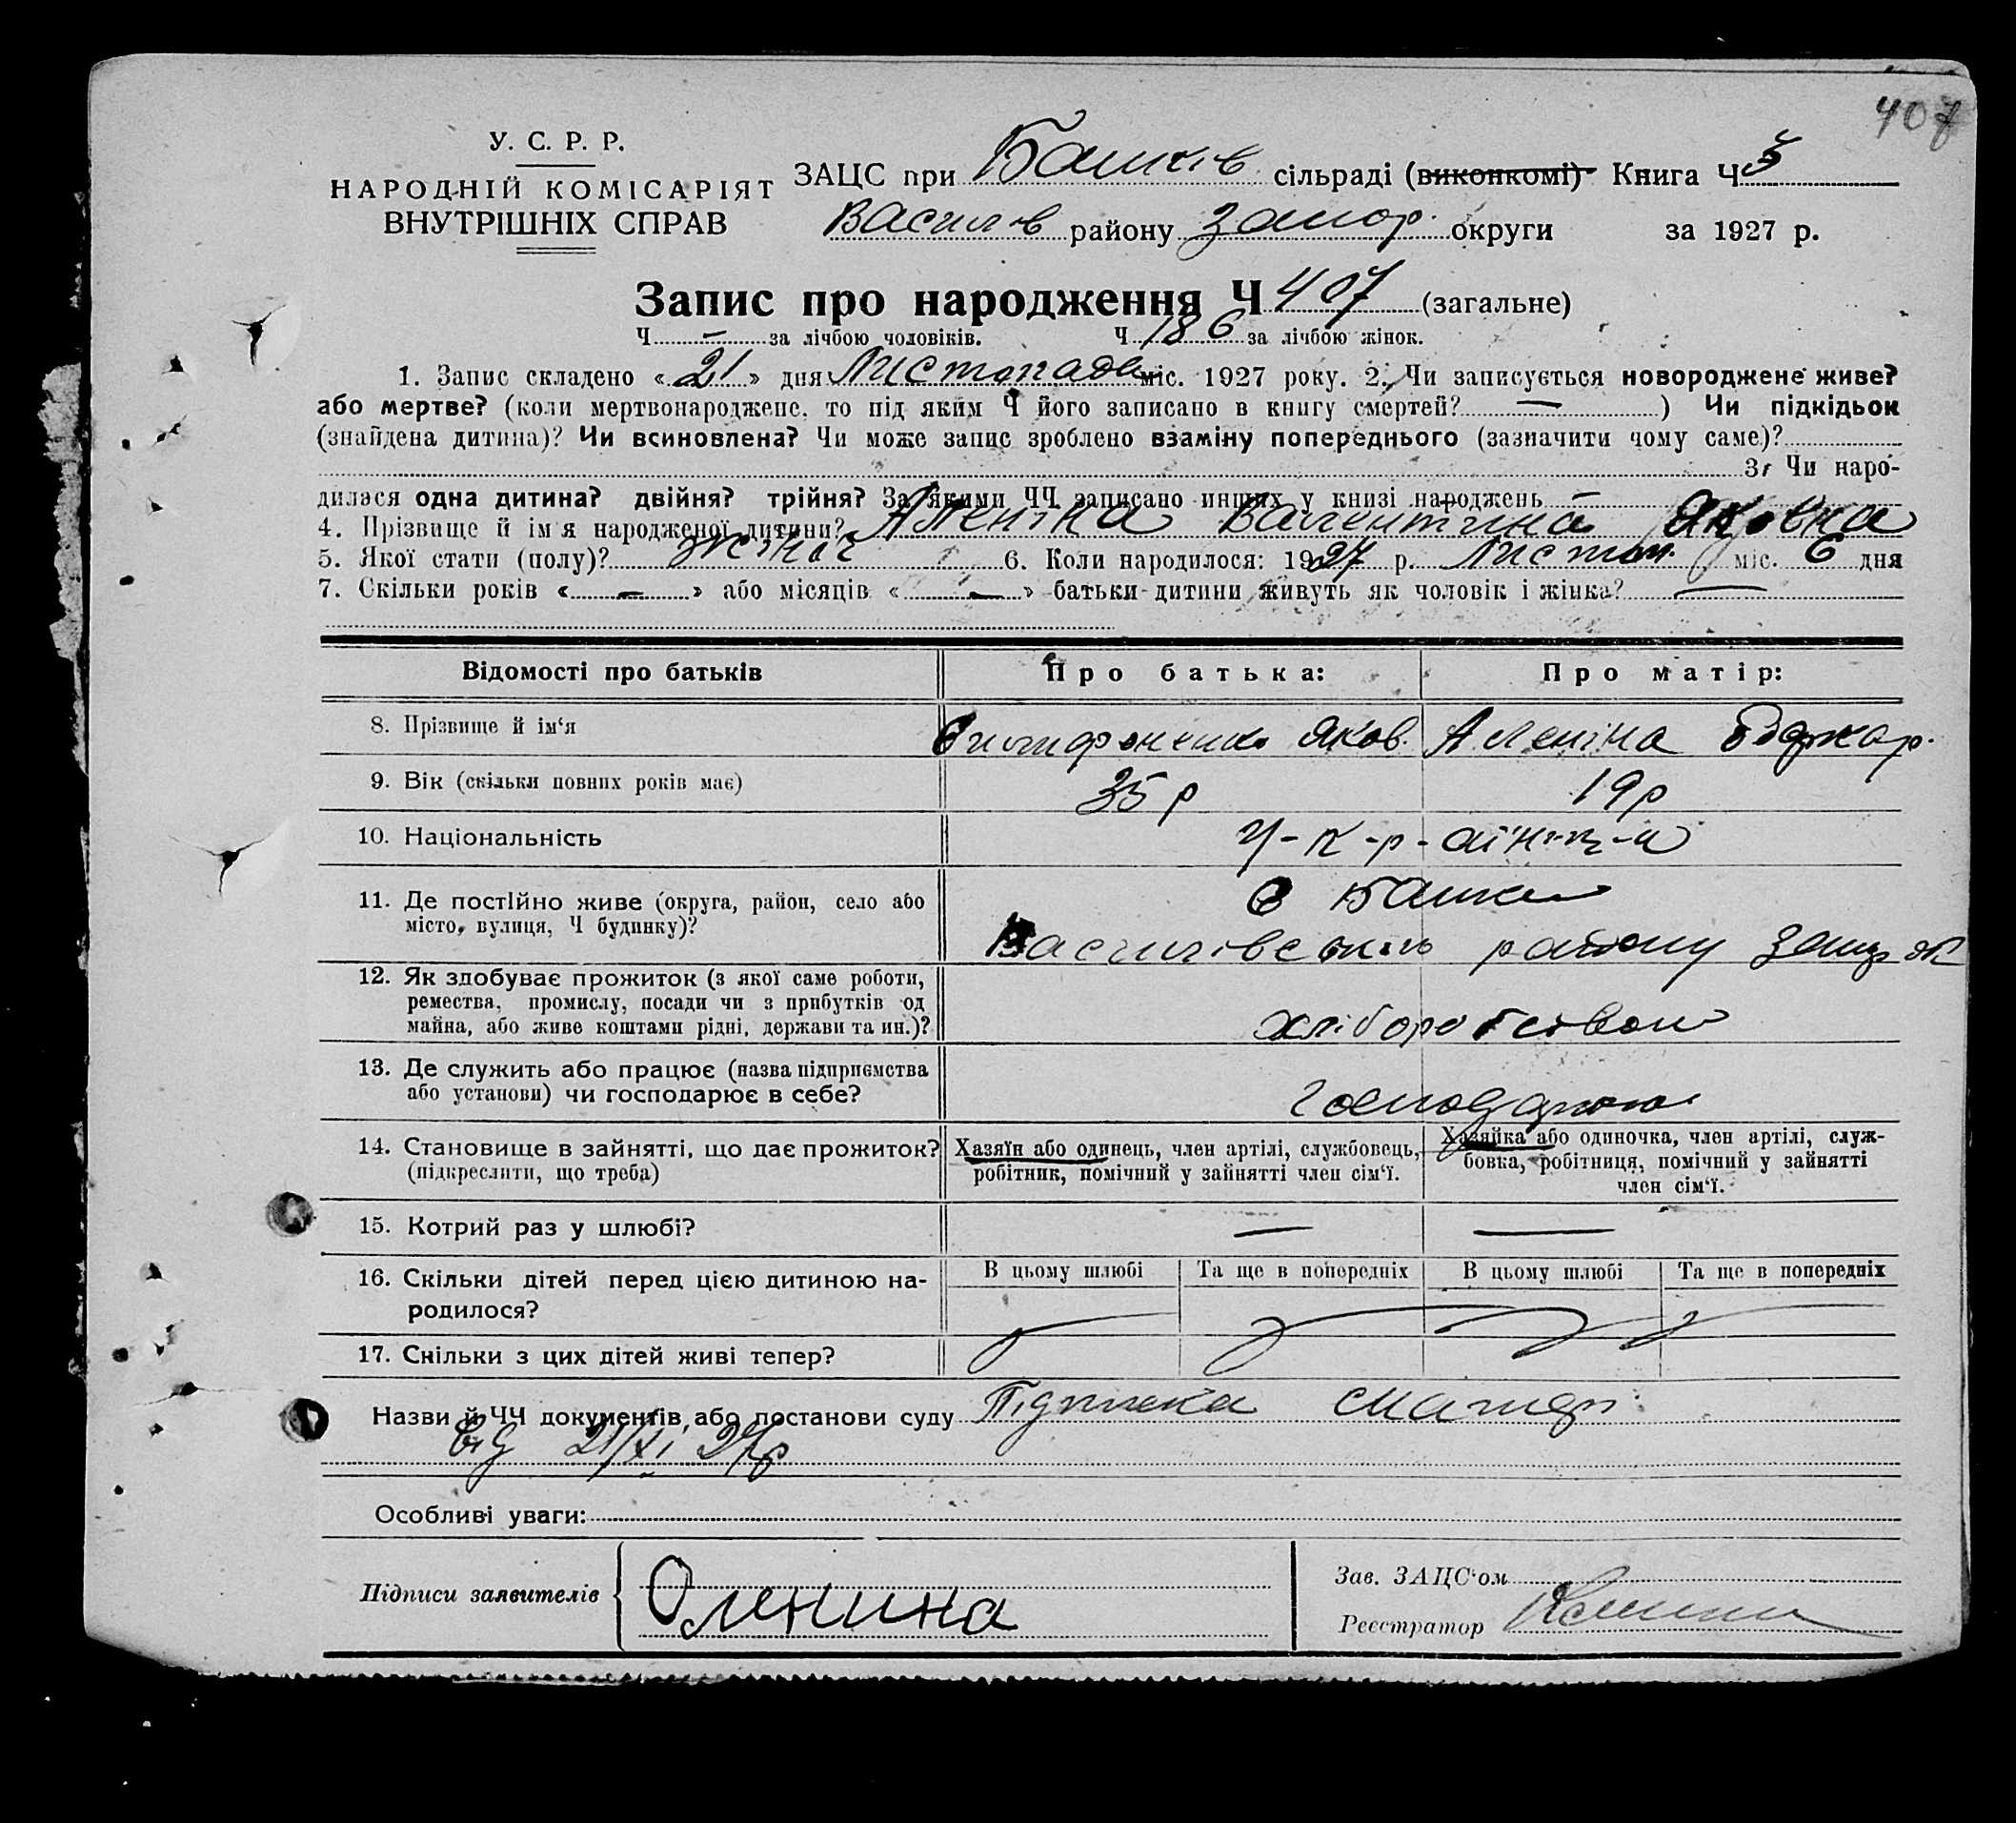 407
У. С. Р. Р.
НАРОДНІЙ КОМІСАРІЯТ
ВНУТРІШНІХ СПРАВ
ЗАЦС при Башків сільраді (виконкомі) Книга Ч 5
Василів району Запор. округи за 1927 р.
Запис про народження Ч 407 (загальне)
Ч — за лічбою чоловіків. Ч 186 за лічбою жінок.
1. Запис складено «21» дня Листопада міс. 1927 року. 2. Чи записується новороджене живе?
або мертве? (коли мертвонароджене, то під яким Ч його записано в книгу смертей? — ) Чи підкідьок
(знайдена дитина)? Чи всиновлена? Чи може запис зроблено взаміну попереднього (зазначити чому саме)?
3. Чи наро-
дилася одна дитина? двійня? трійня? За якими ЧЧ записано инших у книзі народжень —
4. Прізвище й ім'я народженої дитини? Аленіна Валентина Яковна
5. Якої стати (полу)? жіноч 6. Коли народилося: 1927 р. Листоп. міс. 6 дня
7. Скільки років « — » або місяців « — » батьки дитини живуть як чоловік і жінка? —
Відомості про батьків Про батька: Про матір:
8. Прізвище й ім'я Яков. Аленіна
9. Вік (скільки повних років має) 35 р 19 р
10. Національність У-к-р-аїн-ц-и
11. Де постійно живе (округа, район, село або
місто, вулиця, Ч будинку)?
с Башки
Василівського району
12. Як здобуває прожиток (з якої саме роботи,
ремества, промислу, посади чи з прибутків од
майна, або живе коштами рідні, держави та ин.)? хліборобством
13. Де служить або працює (назва підприємства
або установи) чи господарює в себе?
14. Становище в зайнятті, що дає прожиток?
(підкреслити, що треба)
Хазяїн або одинець, член артілі, службовець,
робітник, помічний у зайнятті член сім'ї.
Хазяйка або одиночка, член артілі, служ-
бовка, робітниця, помічний у зайнятті
член сім'ї.
15. Котрий раз у шлюбі? — —
16. Скільки дітей перед цією дитиною на-
родилося?
В цьому шлюбі Та ще в попередніх В цьому шлюбі Та ще в попередніх
17. Скільки з цих дітей живі тепер?
Назви й ЧЧ документів або постанови суду Підписка
від 21/XI 27р
Особливі уваги:
Підписи заявителів Оленина
Зав. ЗАЦС'ом
Реєстратор